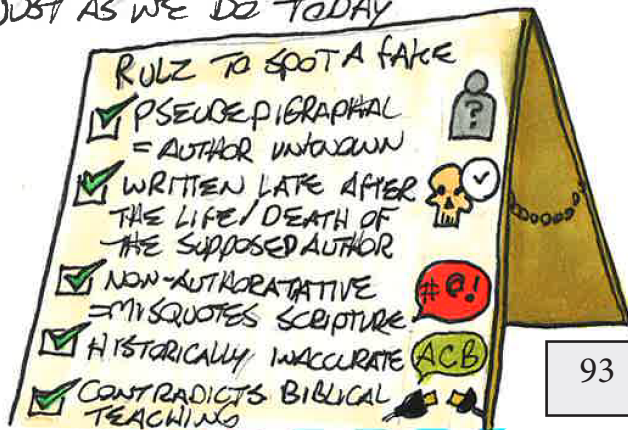 JUST AS WE DO TODAY
RULZ TO SPOT A FAKE
PSEUDEPIGRAPHAL
= AUTHOR UNKNOWN
?
WRITTEN LATE AFTER
THE LIFE/DEATH OF
THE SUPPOSED AUTHOR
NON-AUTHORATATIVE
=MISQUOTES SCRIPTURE
#@!
HISTORICALLY INACCURATE
ACB
CONTRADICTS BIBLICAL
TEACHING
93